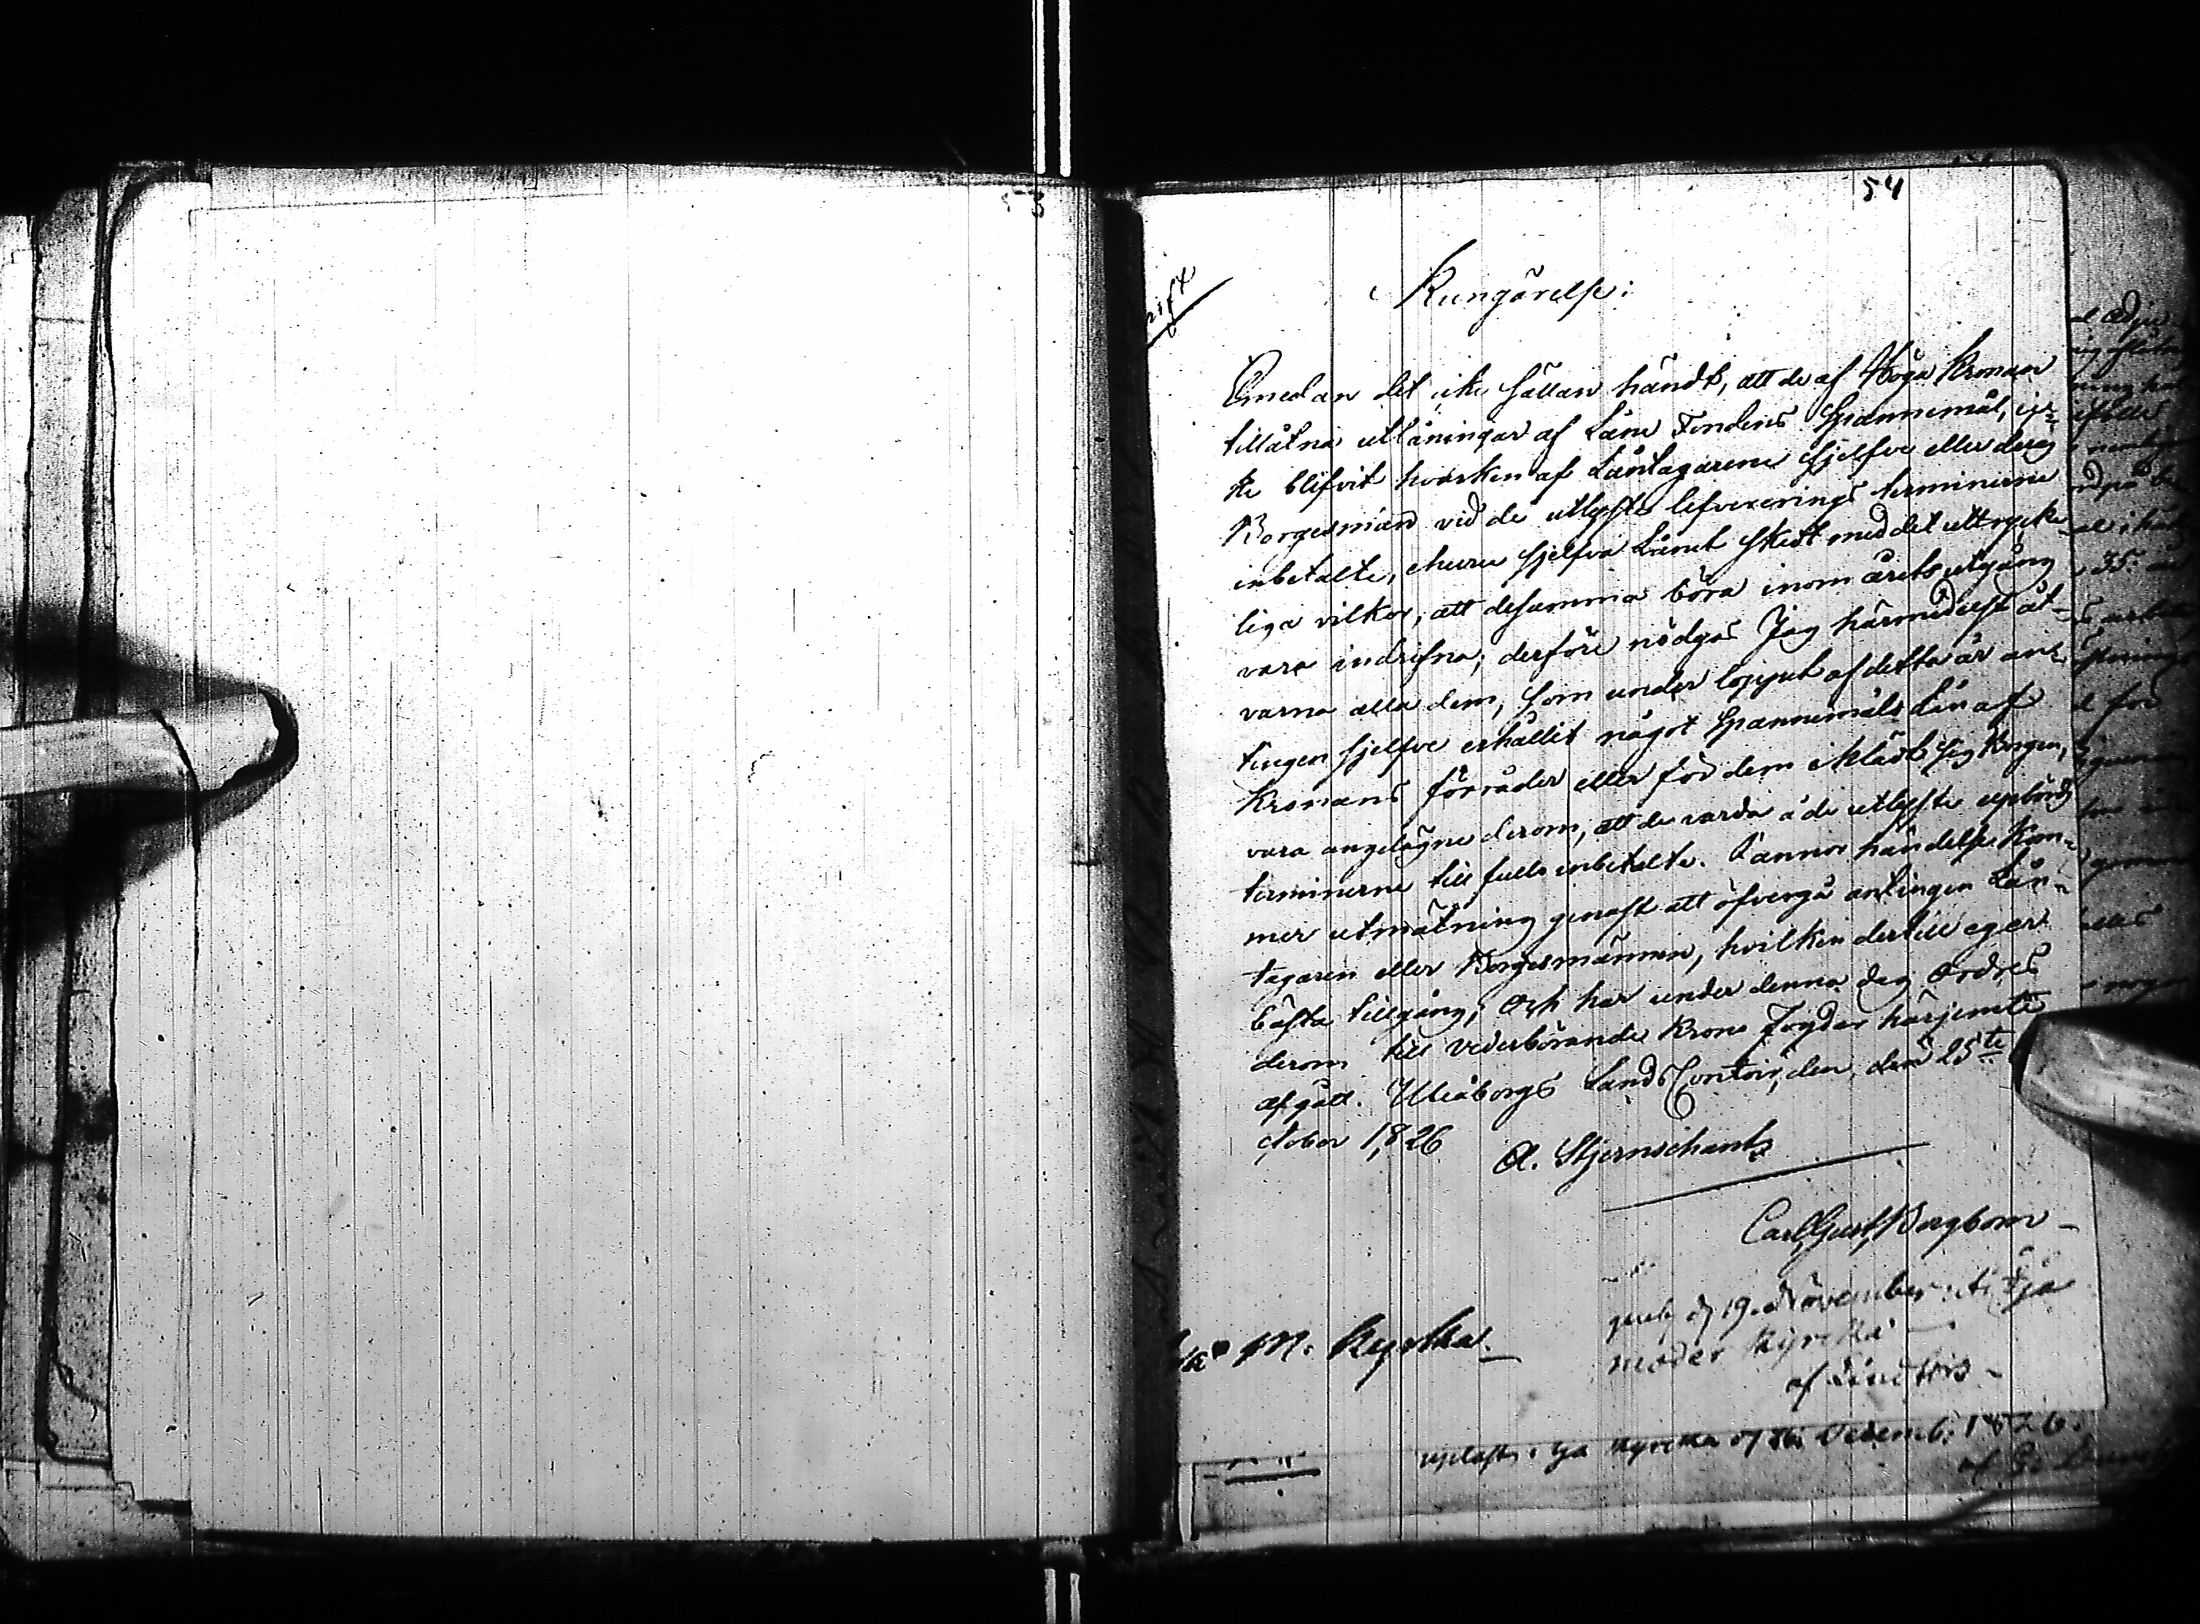 53
54
Kungörelse:
Emedan det icke sällan händt, att de af Höga Kronan
tillåtna utlåningar af Låne Fondens Spannemål, ic-
ke blifvit hvarken af Låntagarene sjelfve eller deras
Borgesmän vid de utlyste lefvererings terminerne
inbetalte, ehuru sjelfva Lånet skedt med det uttrycke-
liga vilkor, att desamma böra inom årets utgång
vara indrifna; derföre nödgas Jag härmedelst åt-
varna alla dem, som under loppet af detta år an-
tingen sjelfve erhållit något Spannemåls Lån af
Kronans förråder eller för dem iklädt sig Borgen,
vara angelägne derom, att de varda å de utlyste upbörds
terminerne till fullo inbetalte. I annor händelse kom-
mer utmätning genast att öfvergå antingen Lån-
tagaren eller Borgesmännen, hvilken dertill eger
bästa tillgång; Och har under denna dag Ordres
derom till vederbörande Krono Fogdar härjemte
afgått. Uleåborgs Lands Contoir, den den 25te
ctober 1826
A. Stjernschantz
Carl Gust Borgbom
publ d 19. November: i Ijo
moder Kyrka
af
M. Kyrka.
upläst i Ijo Kyrka d Decemb: 1826.
af G.